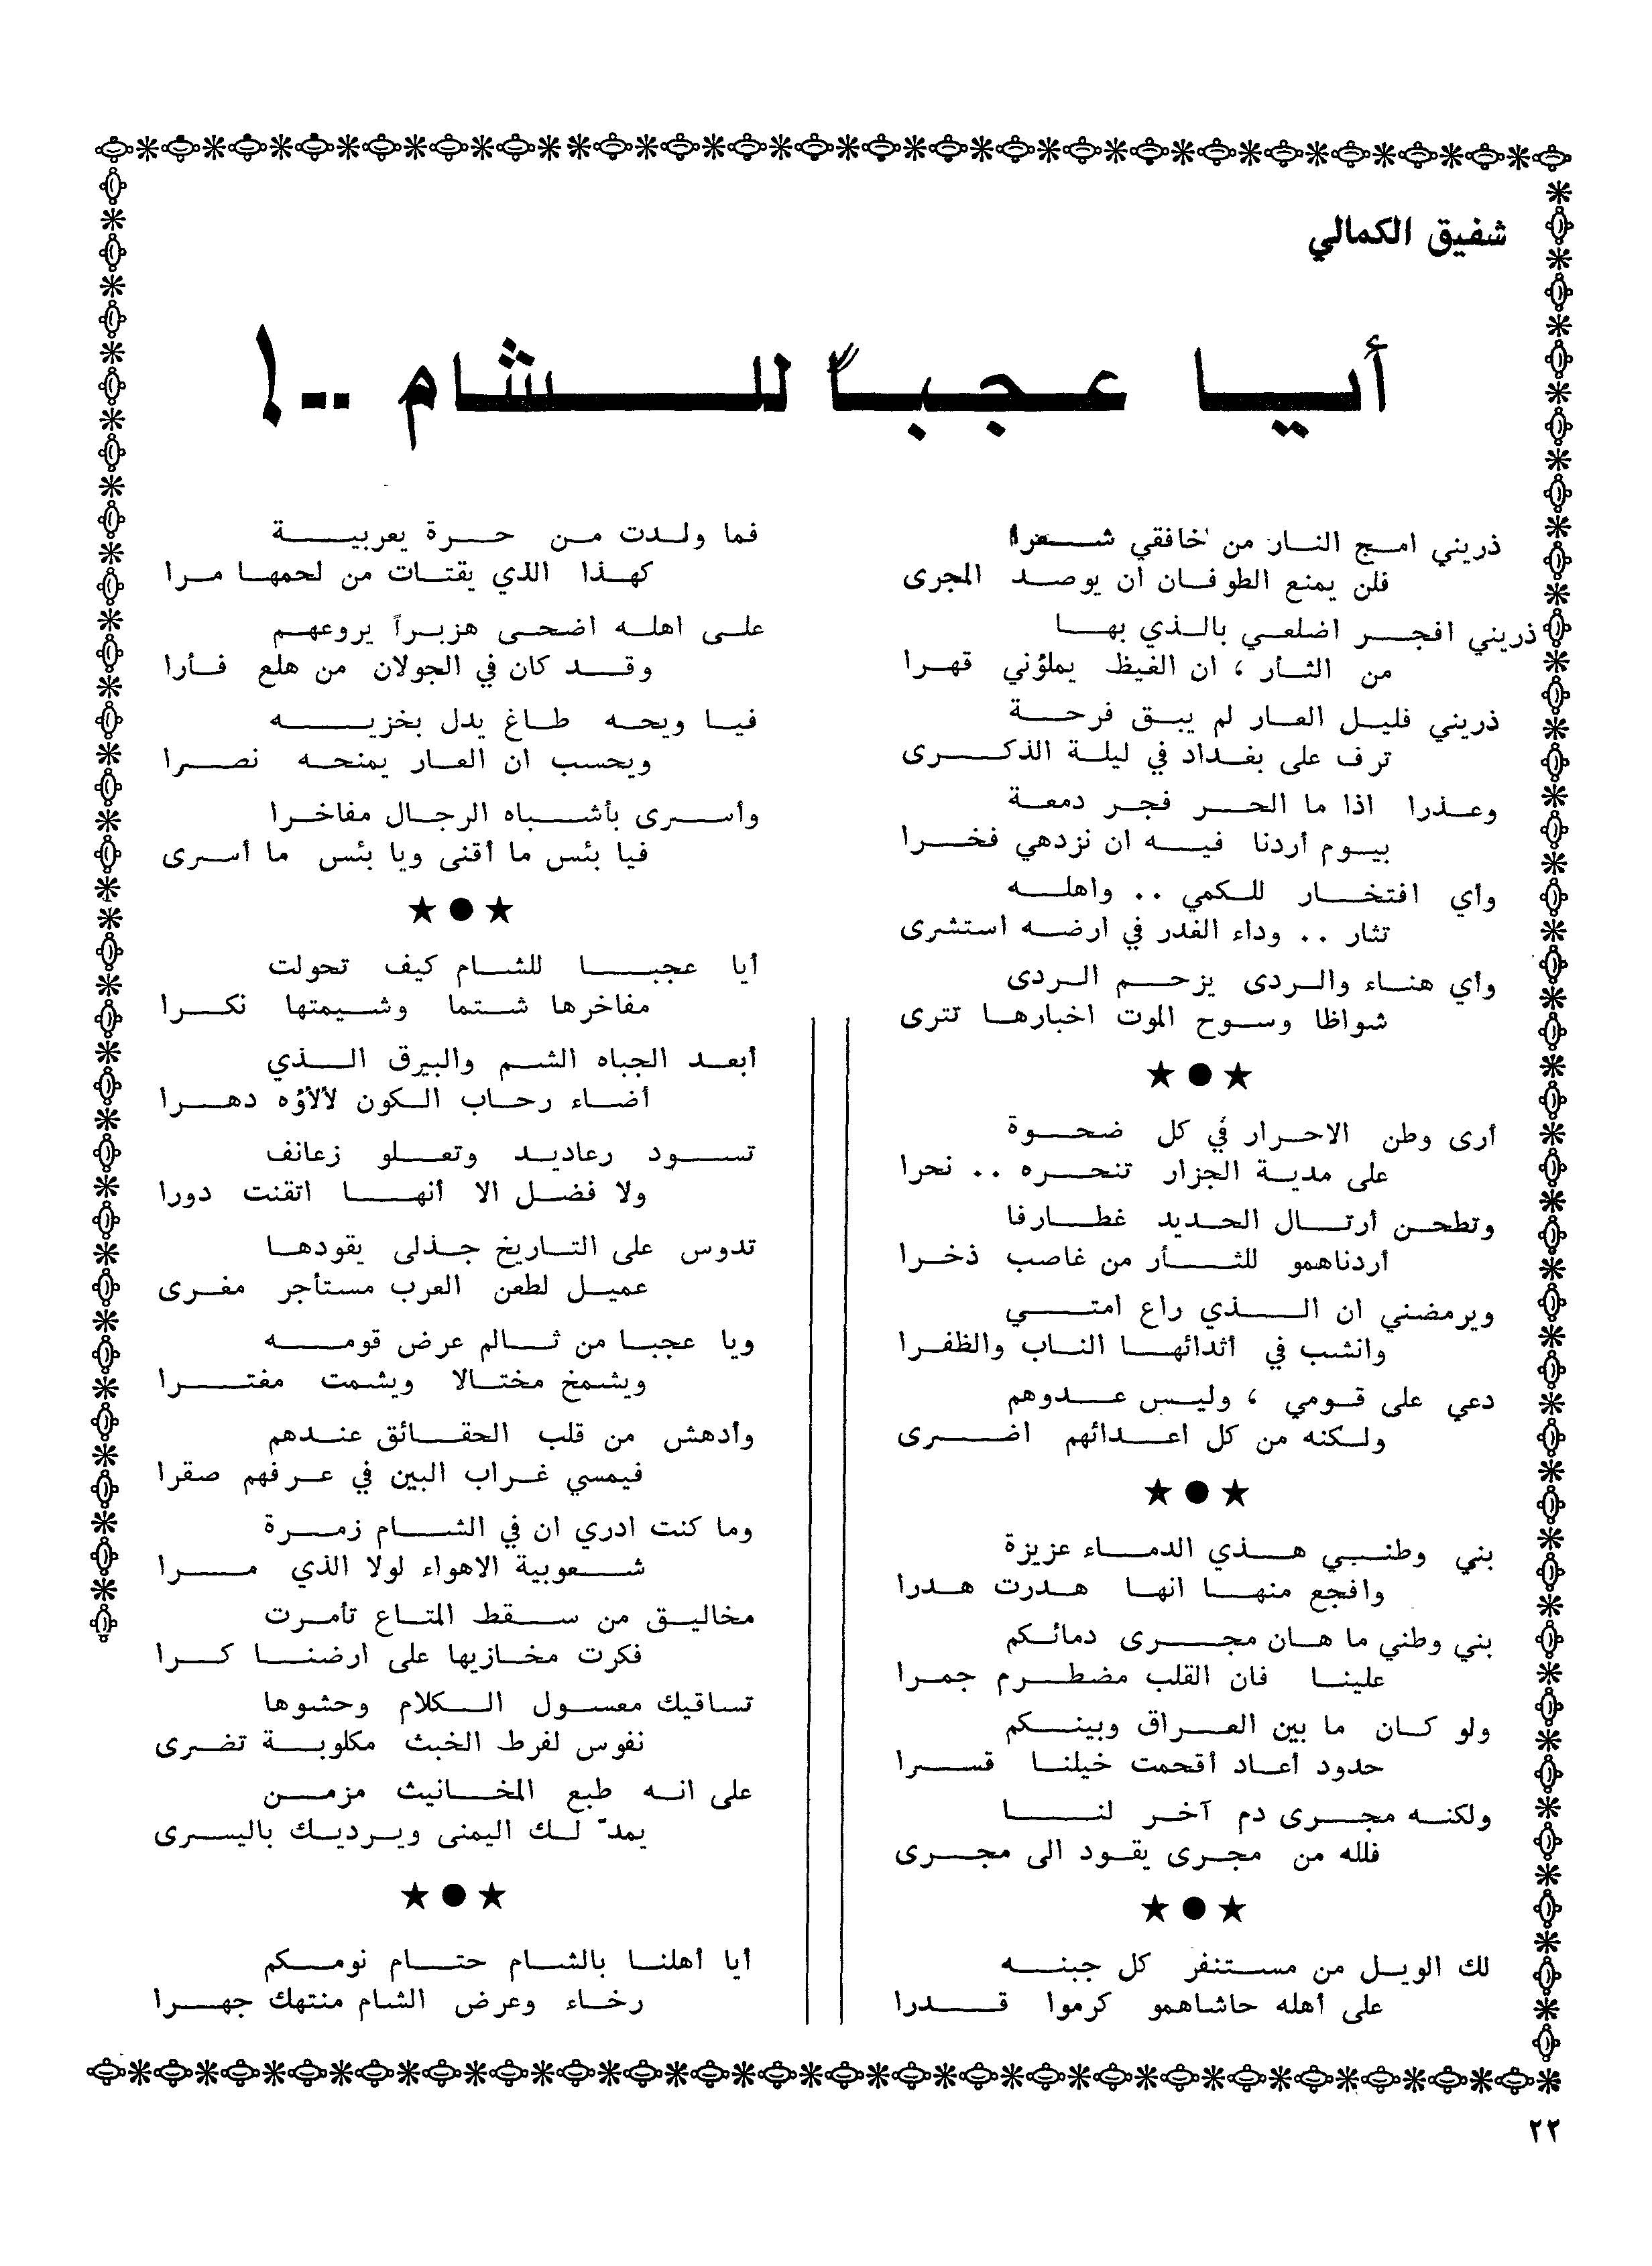 شفيق الكمالي
أيا عجباً للشام ..!
ذريني امج النار من خافقي شعرا
فلن يمنع الطوفان ان يوصد المجرى
ذريني افجر اضلعي بالذي بها
من الثأر ، ان الغيظ يملؤني قهرا
ذريني فليل العار لم يبق فرحة
ترف على بغداد في ليلة الذكرى
وعذرا اذا ما الحر فجر دمعة
بيوم أردنا فيه ان نزدهي فخرا
وأي افتخار للكمي .. واهله
تثار .. وداء الغدر في ارضه استشرى
وأي هناء والردى يزحم الردى
شواظا وسوح الموت اخبارها تترى
★ ● ★
أرى وطن الاحرار في كل ضحوة
على مدية الجزار تنحره .. نحرا
وتطحن أرتال الحديد غطارفا
أردناهمو للثأر من غاصب ذخرا
ويرمضني ان الذي راع امتي
وانشب في أثدائها الناب والظفرا
دعي على قومي ، وليس عدوهم
ولكنه من كل اعدائهم اضرى
★ ● ★
بني وطنبي هذي الدماء عزيزة
وافجع منها انها هدرت هدرا
بني وطني ما هان مجرى دمائكم
علينا فان القلب مضطرم جمرا
ولو كان ما بين العراق وبينكم
حدود أعاد أقحمت خيلنا قسرا
ولكنه مجرى دم آخر لنا
فلله من مجرى يقود الى مجرى
★ ● ★
لك الويل من مستنفر كل جبنه
على أهله حاشاهمو كرموا قدرا
فما ولدت من حرة يعربية
كهذا الذي يقتات من لحمها مرا
على اهله اضحى هزبراً يروعهم
وقد كان في الجولان من هلع فأرا
فيا ويحه طاغ يدل بخزيه
ويحسب ان العار يمنحه نصرا
وأسرى بأشباه الرجال مفاخرا
فيا بئس ما أقنى ويا بئس ما أسرى
★ ● ★
أيا عجبا للشام كيف تحولت
مفاخرها شتما وشيمتها نكرا
أبعد الجباه الشم والبيرق الذي
أضاء رحاب الكون لألاؤه دهرا
تسود رعاديد وتعلو زعانف
ولا فضل الا أنها اتقنت دورا
تدوس على التاريخ جذلى يقودها
عميل لطعن العرب مستأجر مغرى
ويا عجبا من ثالم عرض قومه
ويشمخ مختالا ويشمت مفترا
وأدهش من قلب الحقائق عندهم
فيمسي غراب البين في عرفهم صقرا
وما كنت ادري ان في الشام زمرة
شعوبية الاهواء لولا الذي مرا
مخاليق من سقط المتاع تأمرت
فكرت مخازيها على ارضنا كرا
تساقيك معسول الكلام وحشوها
نفوس لفرط الخبث مكلوبة تضرى
على انه طبع المخانيث مزمن
يمدّ لك اليمنى ويرديك باليسرى
★ ● ★
أيا أهلنا بالشام حتام نومكم
رخاء وعرض الشام منتهك جهرا
٢٢